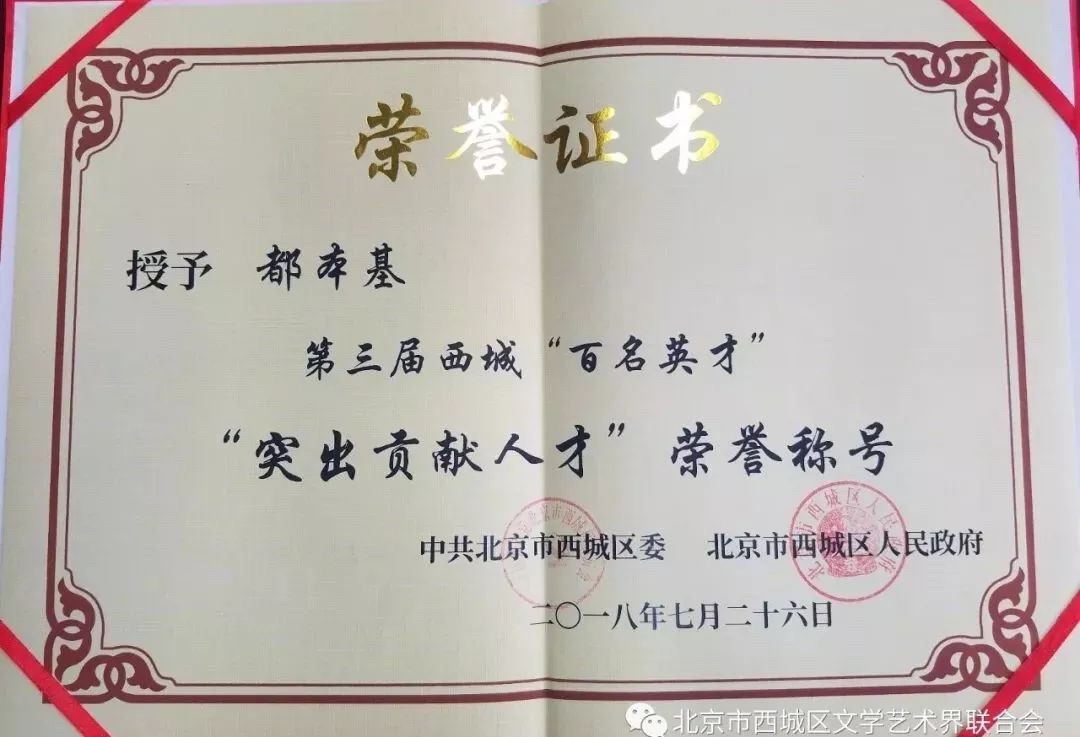 荣誉证书
授予 都本基
第三届西城“百名英才”
“突出贡献人才”荣誉称号
中共北京市西城区委 北京市西城区人民政府
二〇一八年七月二十六日
北京市西城区文学艺术界联合会